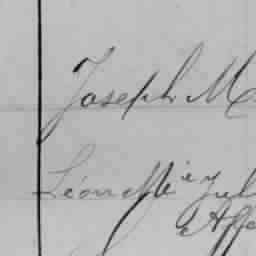 Joseph M
Léon Mie Jul
Aff